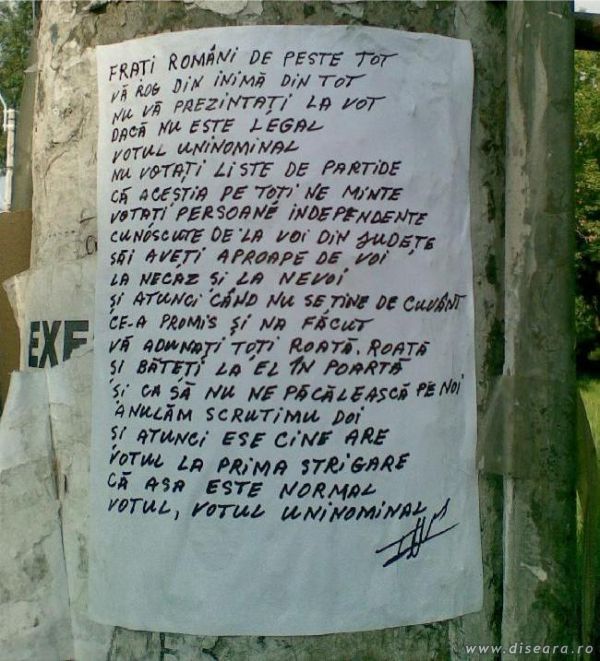 FRAȚI ROMÂNI DE PESTE TOT
VĂ ROG DIN INIMĂ DIN TOT
NU VĂ PREZINTAȚI LA VOT
DACĂ NU ESTE LEGAL
VOTUL UNINOMINAL
NU VOTAȚI LISTE DE PARTIDE
CĂ ACEȘTIA PE TOȚI NE MINTE
VOTAȚI PERSOANE INDEPENDENTE
CUNOSCUTE DE LA VOI DIN JUDEȚE
SĂI AVEȚI APROAPE DE VOI
LA NECAZ ȘI LA NEVOI
ȘI ATUNCI CÂND NU SE ȚINE DE CUVÂNT
CE-A PROMIS ȘI NA FĂCUT
VĂ ADUNAȚI TOȚI ROATĂ. ROATĂ
ȘI BĂTEȚI LA EL ÎN POARTĂ
ȘI CA SĂ NU NE PĂCĂLEASCĂ PE NOI
ANULĂM SCRUTIMU DOI
ȘI ATUNCI ESE CINE ARE
VOTUL LA PRIMA STRIGARE
CĂ AȘA ESTE NORMAL
VOTUL, VOTUL UNINOMINAL
EXE
www.diseara.ro